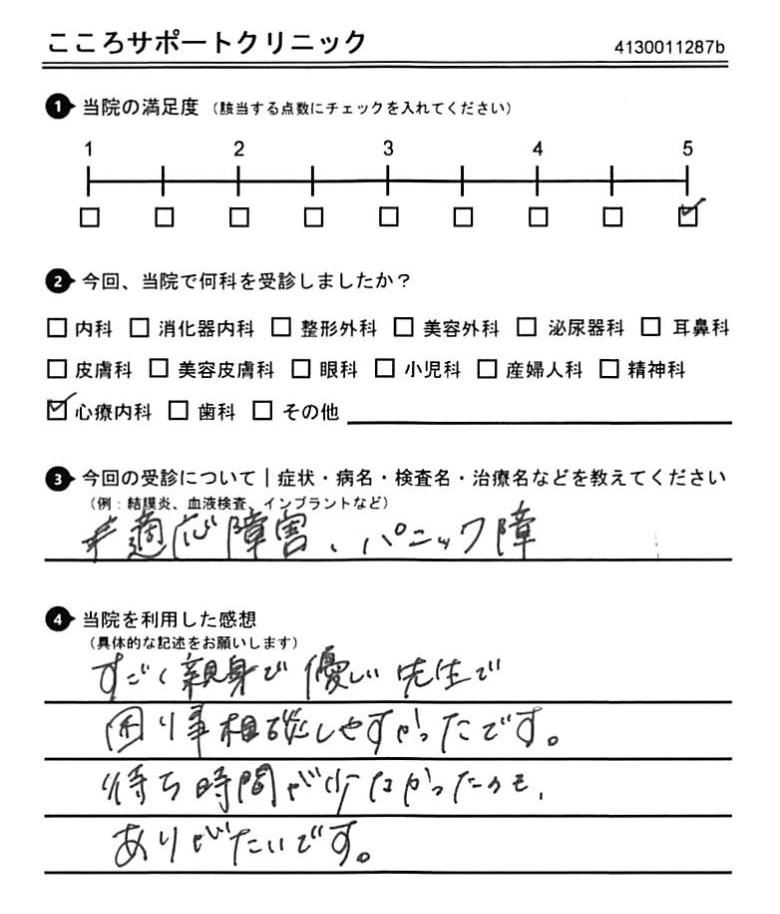 こころサポートクリニック 4130011287b
1 当院の満足度 (該当する点数にチェックを入れてください)
1 2 3 4 5
□ □ □ □ □ □ □ □ ☑
2 今回、当院で何科を受診しましたか?
□ 内科 □ 消化器内科 □ 整形外科 □ 美容外科 □ 泌尿器科 □ 耳鼻科
□ 皮膚科 □ 美容皮膚科 □ 眼科 □ 小児科 □ 産婦人科 □ 精神科
☑ 心療内科 □ 歯科 □ その他
3 今回の受診について|症状・病名・検査名・治療名などを教えてください
(例:結膜炎、血液検査、インプラントなど)
適応障害、パニック障
4 当院を利用した感想
(具体的な記述をお願いします)
すごく親身で優しい先生で
困り事相談しやすかったです。
待ち時間が少なかったのも、
ありがたいです。